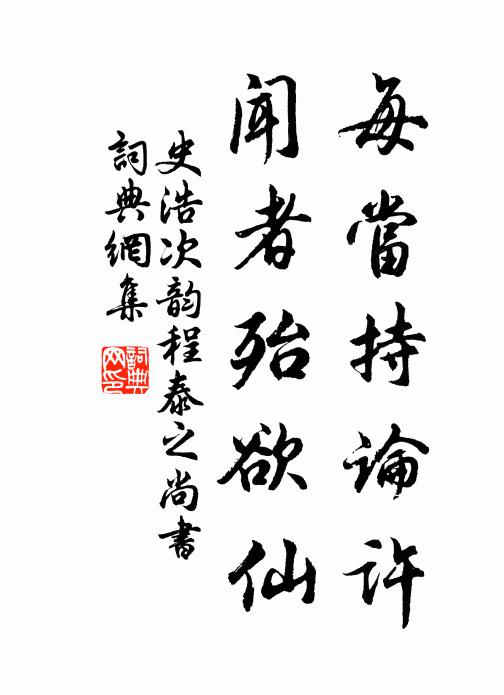 每當持論許
聞者殆欲仙
史浩次韵程泰之尚書
詞典網集
詞典網印